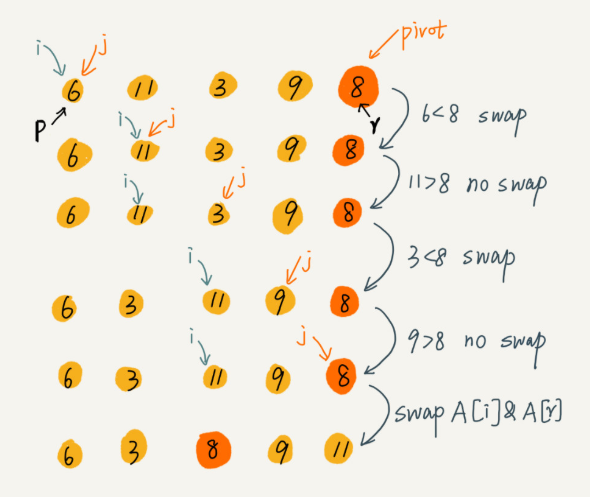 pivot
i j
6 11 3 9 8
p i j r 6<8 swap
6 11 3 9 8
i j 11>8 no swap
6 11 3 9 8
i j 3<8 swap
6 3 11 9 8
i j 9>8 no swap
6 3 11 9 8
swap A[i]&A[r]
6 3 8 9 11